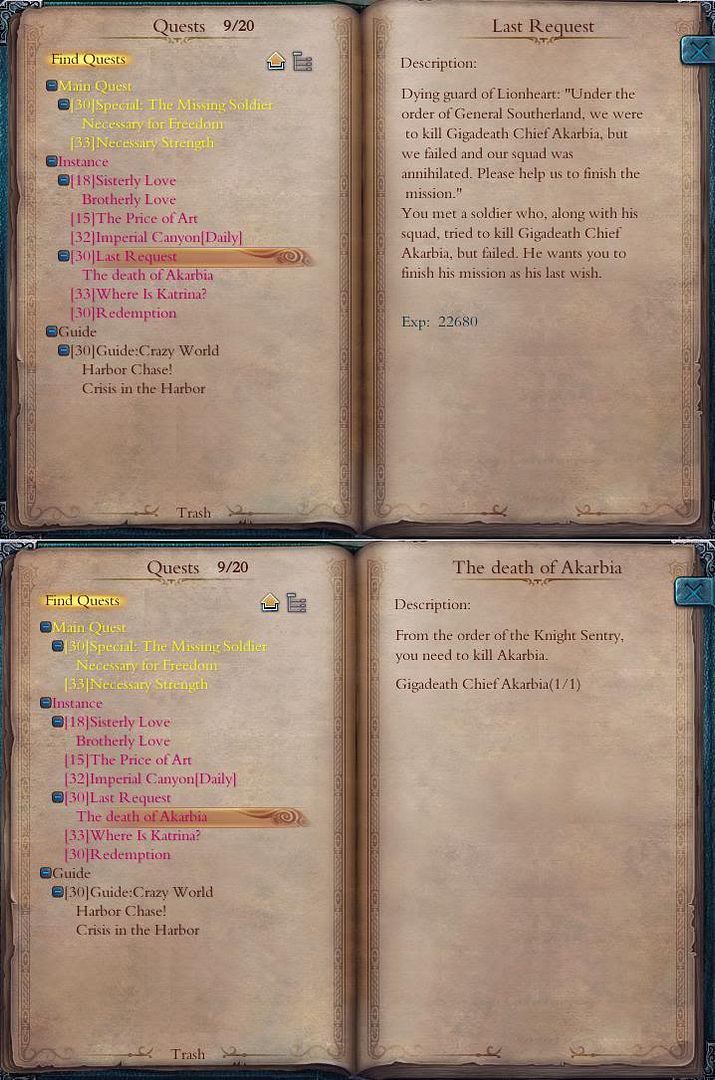 Quests 9/20
Find Quests
Main Quest
[30]Special: The Missing Soldier
Necessary for Freedom
[33]Necessary Strength
Instance
[18]Sisterly Love
Brotherly Love
[15]The Price of Art
[32]Imperial Canyon[Daily]
[30]Last Request
The death of Akarbia
[33]Where Is Katrina?
[30]Redemption
Guide
[30]Guide:Crazy World
Harbor Chase!
Crisis in the Harbor
Trash
Last Request
Description:
Dying guard of Lionheart: "Under the
order of General Southerland, we were
to kill Gigadeath Chief Akarbia, but
we failed and our squad was
annihilated. Please help us to finish the
mission."
You met a soldier who, along with his
squad, tried to kill Gigadeath Chief
Akarbia, but failed. He wants you to
finish his mission as his last wish.
Exp: 22680
Quests 9/20
Find Quests
Main Quest
[30]Special: The Missing Soldier
Necessary for Freedom
[33]Necessary Strength
Instance
[18]Sisterly Love
Brotherly Love
[15]The Price of Art
[32]Imperial Canyon[Daily]
[30]Last Request
The death of Akarbia
[33]Where Is Katrina?
[30]Redemption
Guide
[30]Guide:Crazy World
Harbor Chase!
Crisis in the Harbor
Trash
The death of Akarbia
Description:
From the order of the Knight Sentry,
you need to kill Akarbia.
Gigadeath Chief Akarbia(1/1)